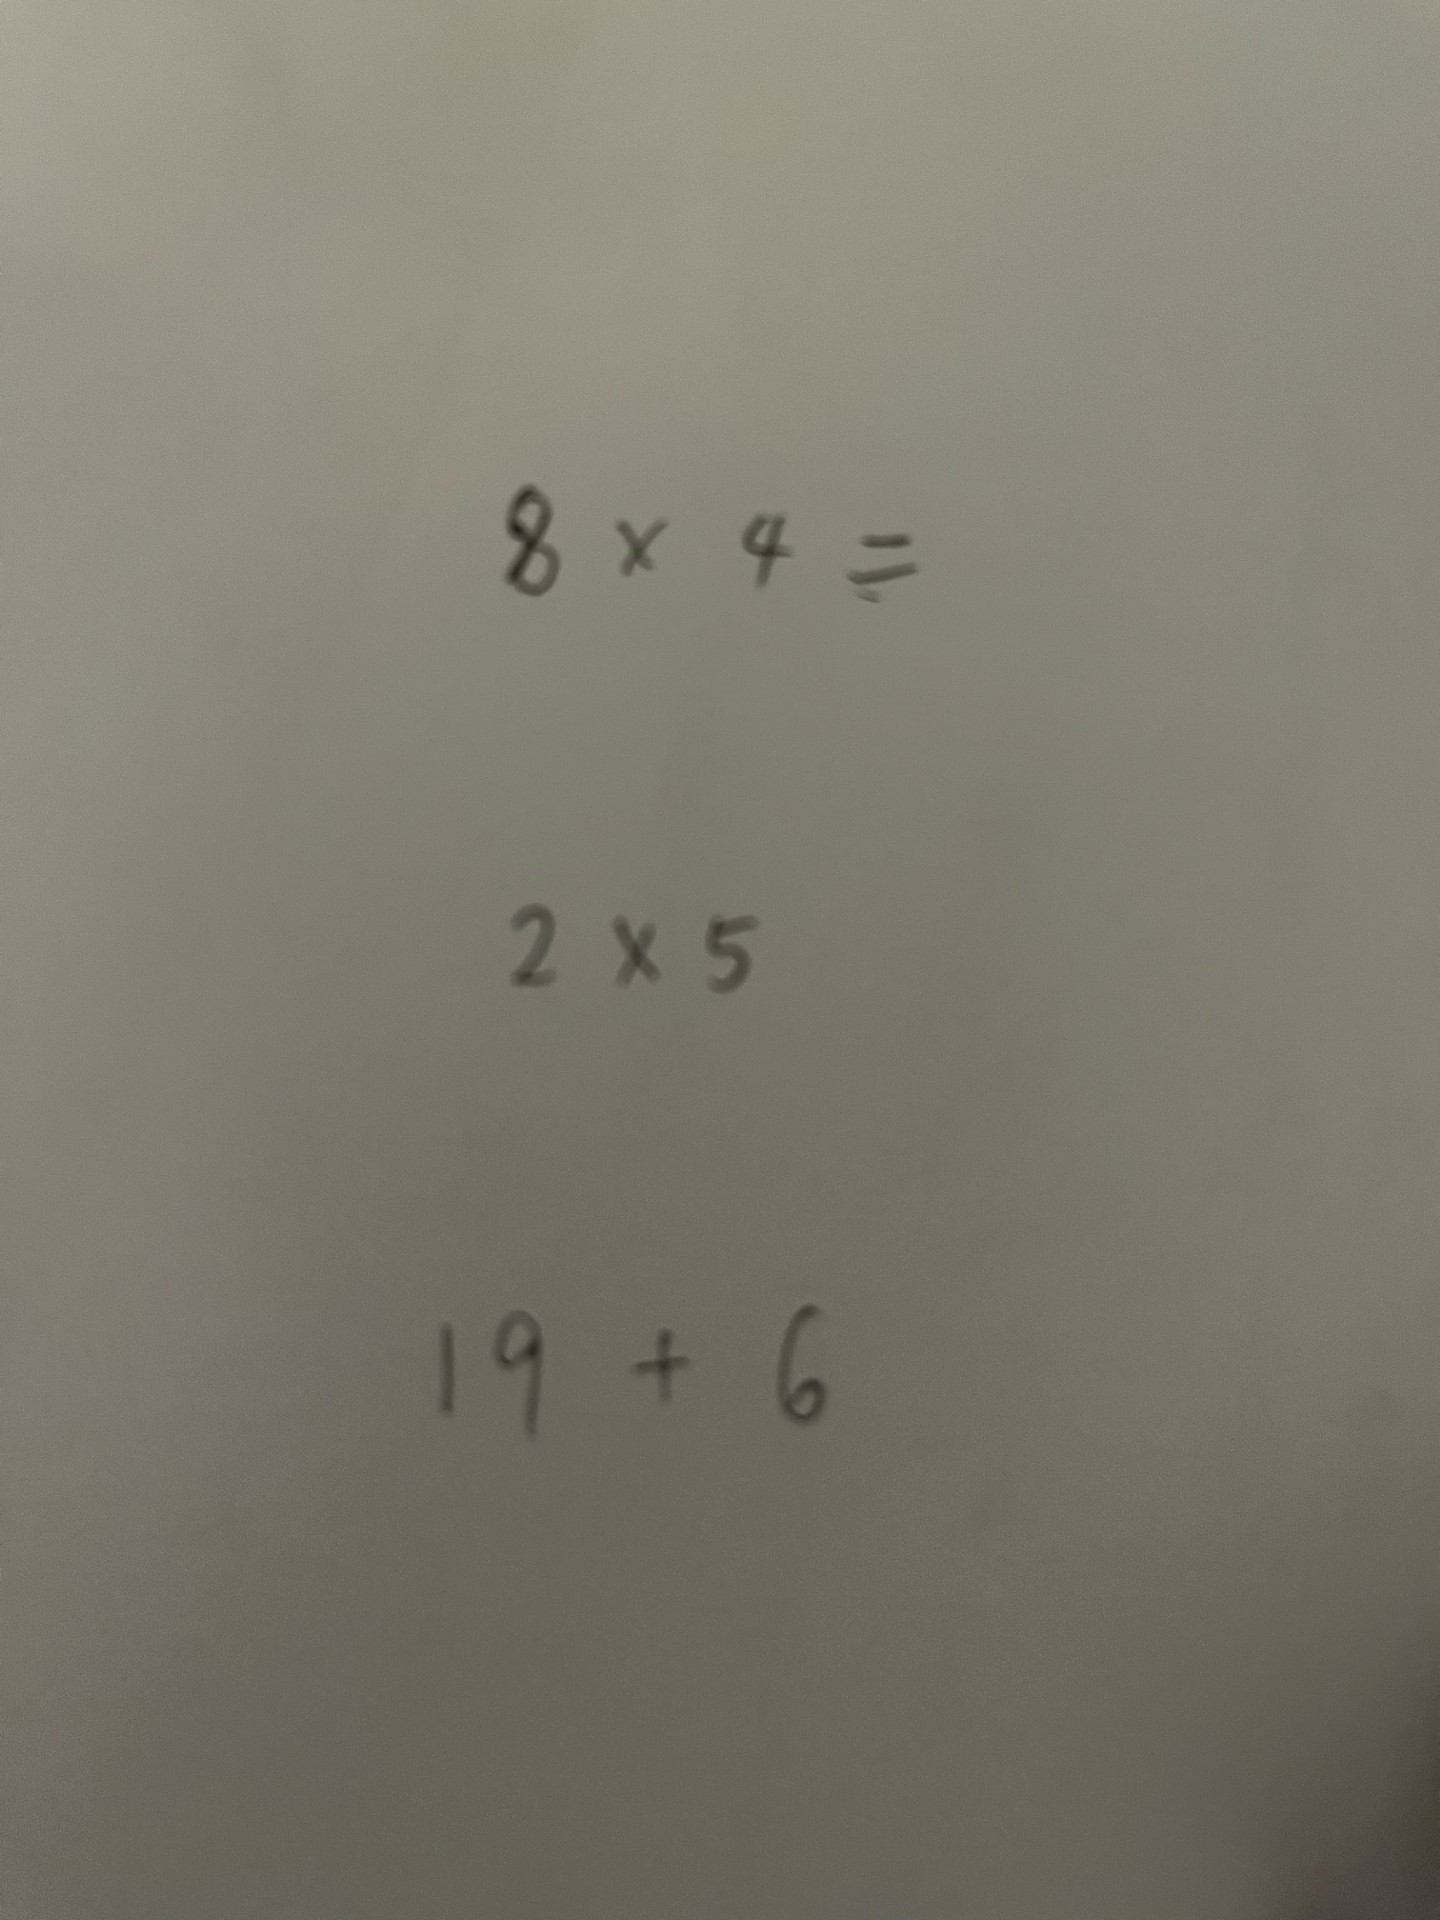 8 × 4 =
2 × 5
19 + 6